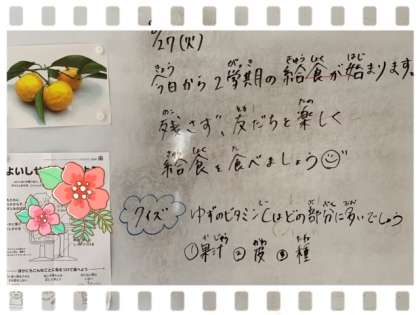 8/27(火)
今日から2学期の給食が始まります。
残さず、友だちと楽しく
給食を食べましょう
クイズ ゆずのビタミンCはどの部分に多いでしょう
①果汁 ②皮 ③種
よいしせ